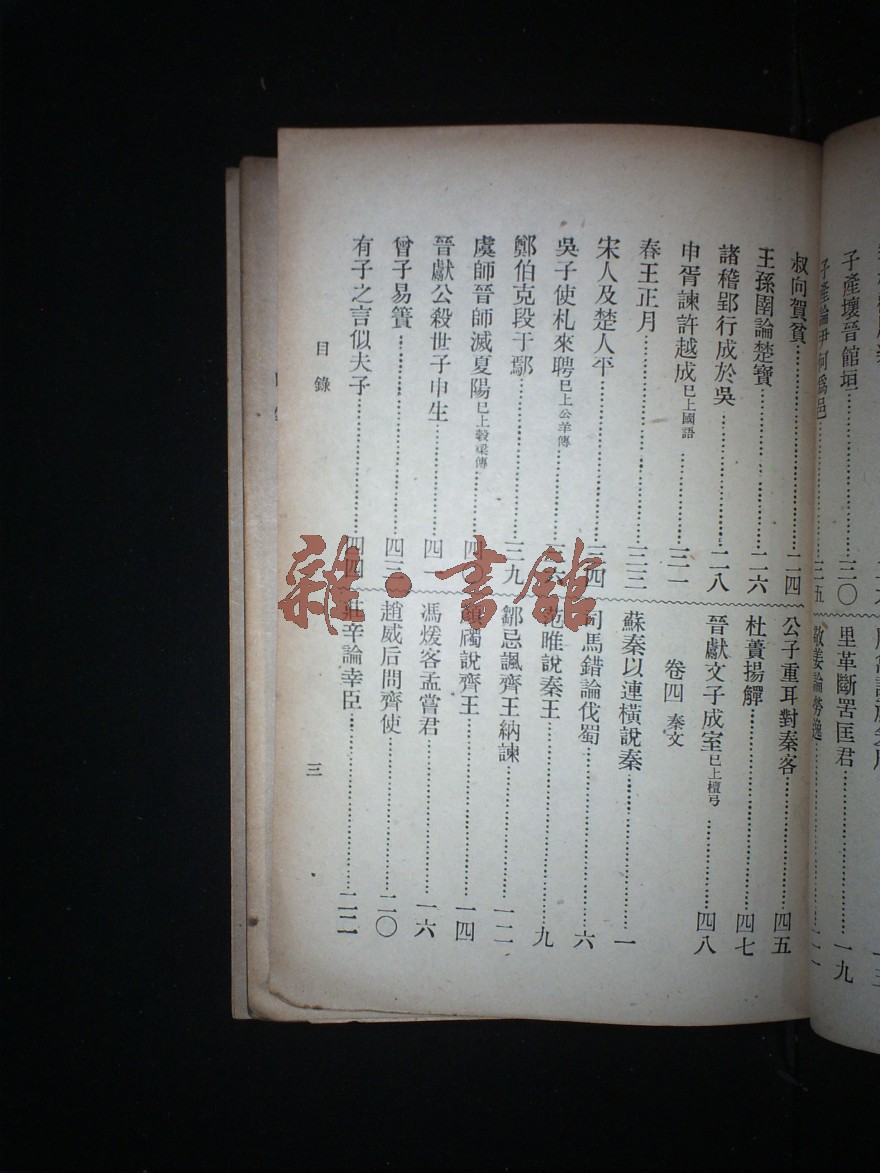 子產壞晉館垣……三〇
子產論尹何爲邑……三五
里革斷罟匡君……一九
敬姜論勞逸……
叔向賀貧……二四
王孫圉論楚寶……二六
諸稽郢行成於吳……二八
申胥諫許越成 已上國語……三一
春王正月……三三
宋人及楚人平……三四
吳子使札來聘 已上公羊傳……三六
鄭伯克段于鄢……三九
虞師晉師滅夏陽 已上穀梁傳……四〇
晉獻公殺世子申生……四一
曾子易簀……四三
有子之言似夫子……四四
公子重耳對秦客……四五
杜蕢揚觶……四七
晉獻文子成室 已上檀弓……四八
卷四 秦文
蘇秦以連橫說秦……一
司馬錯論伐蜀……六
范睢說秦王……九
鄒忌諷齊王納諫……一二
顏斶說齊王……一四
馮煖客孟嘗君……一六
趙威后問齊使……二〇
莊辛論幸臣……二二
目錄
三
雜·書館